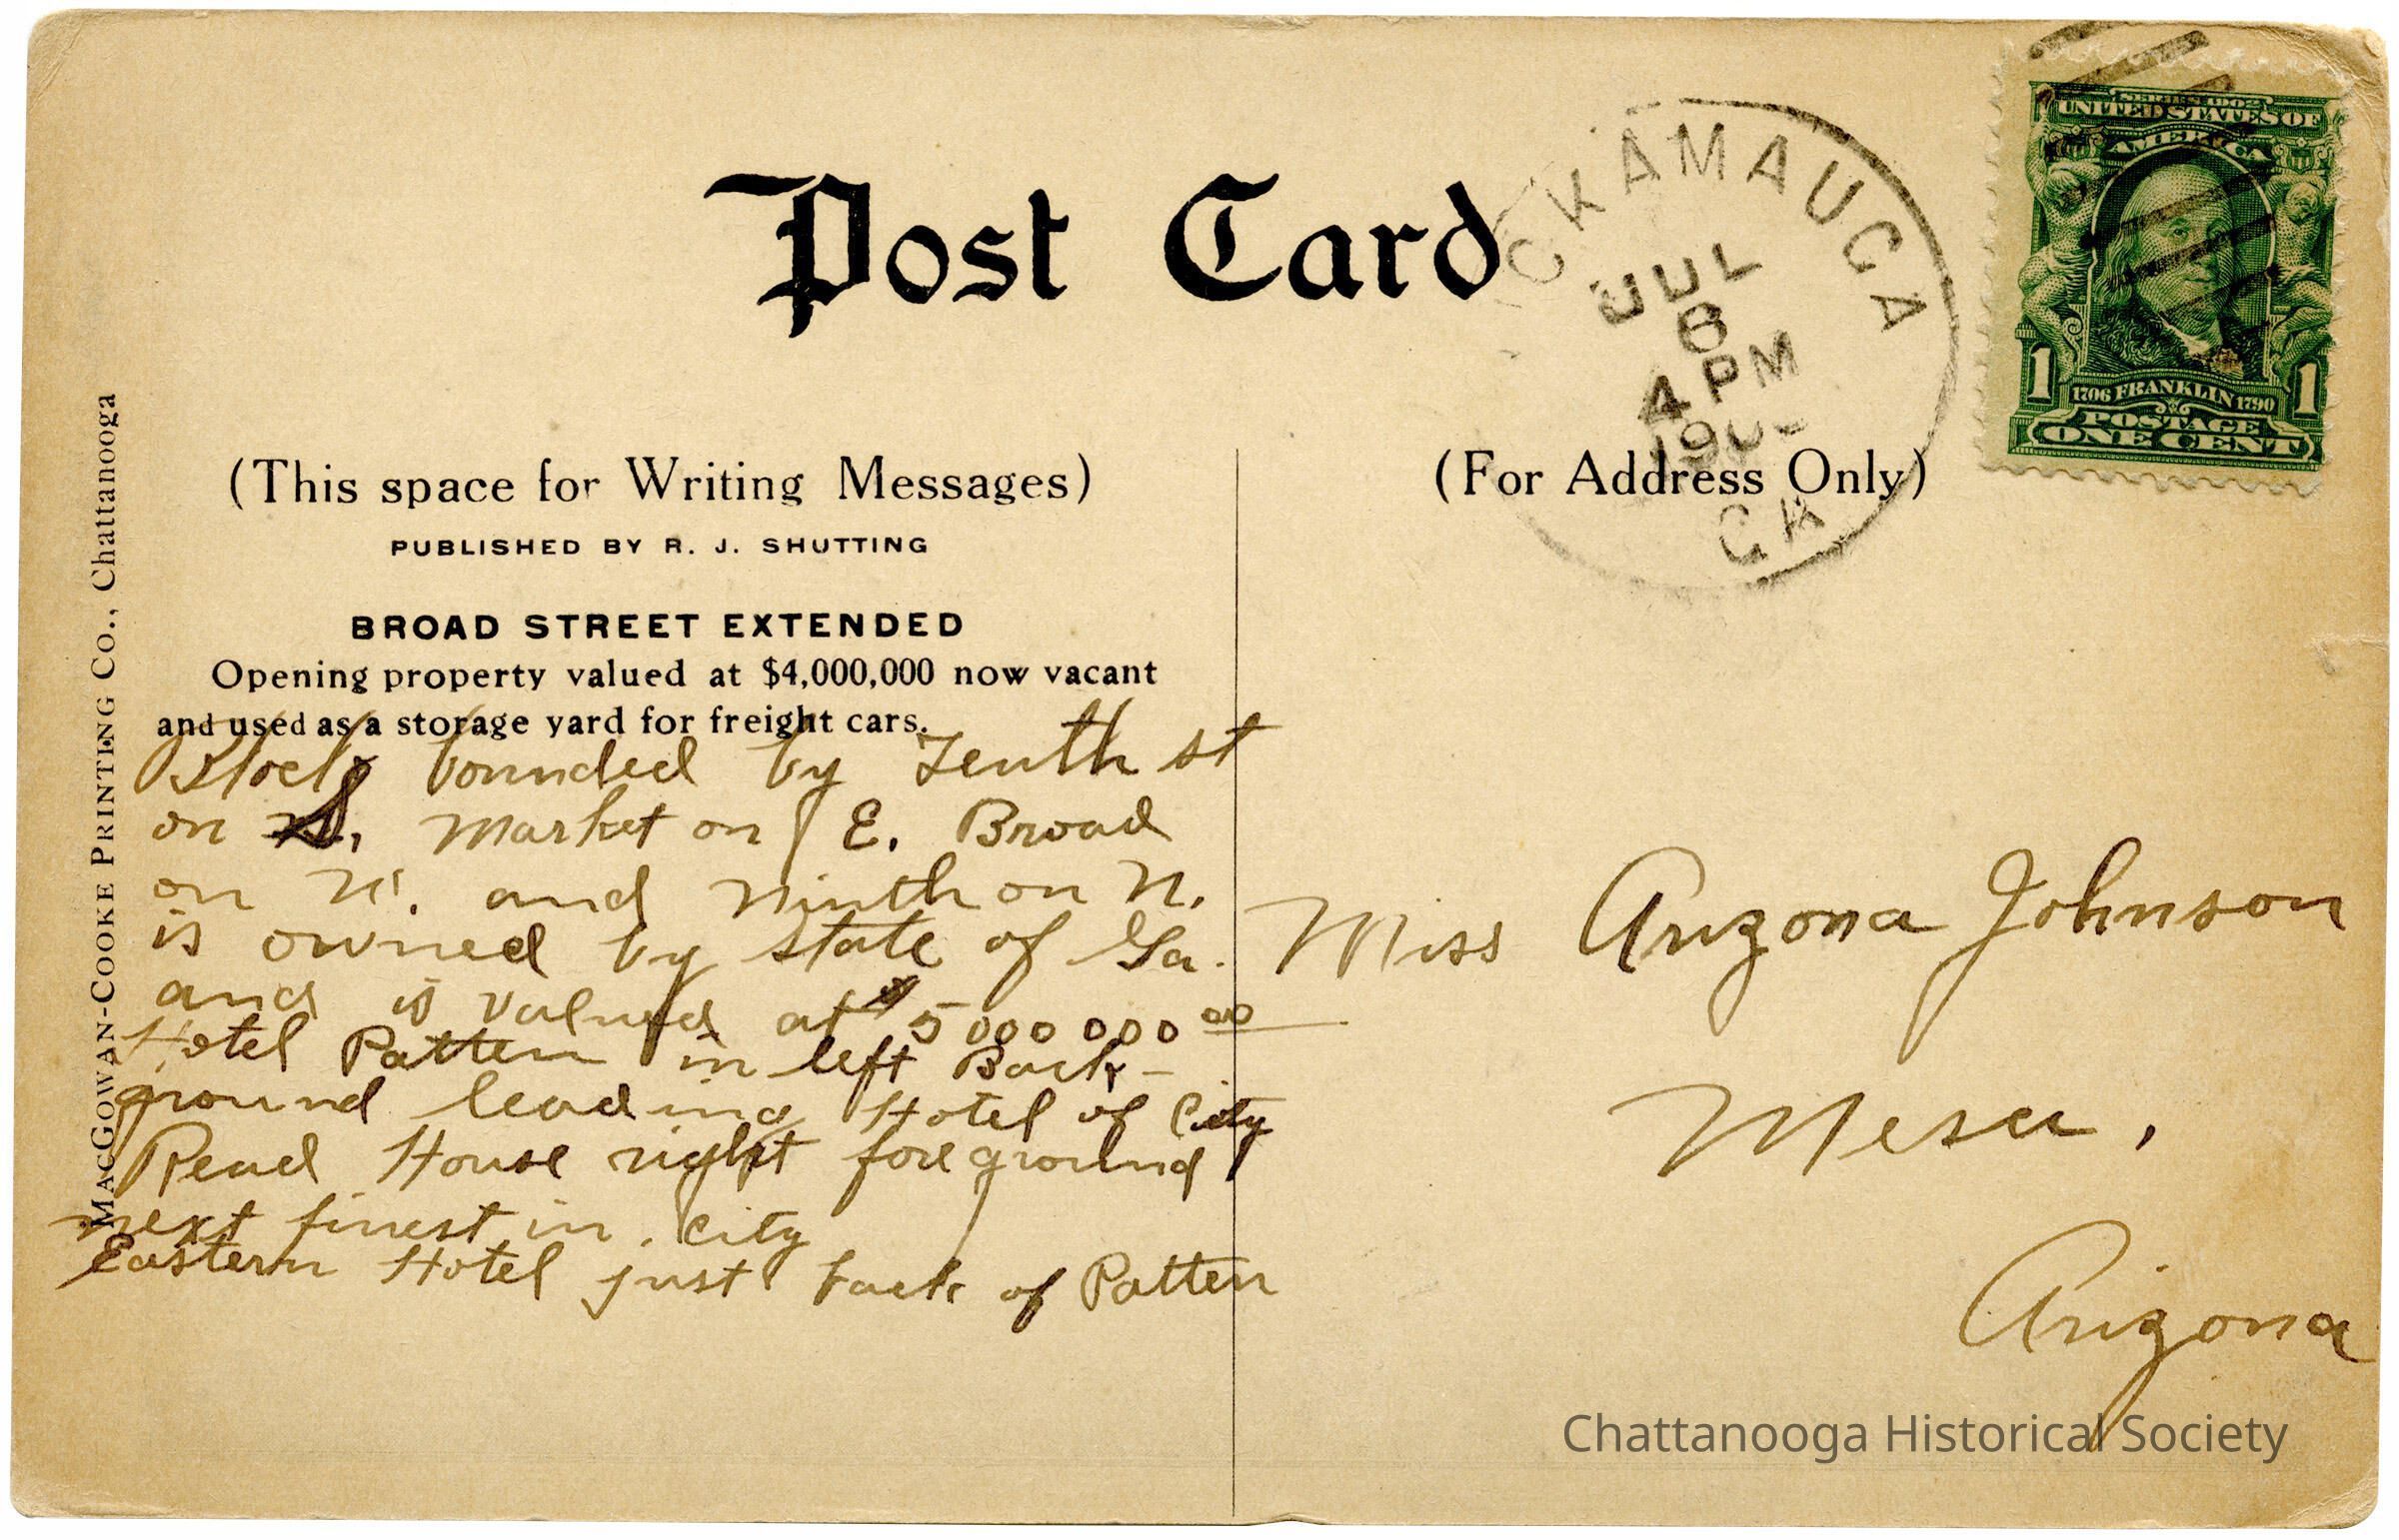 Post Card
CKAMAUGA
JUL
6
4 PM
190
GA
SERIES 1902
UNITED STATES OF
AMERICA
1706 FRANKLIN 1790
1 1
POSTAGE
ONE CENT
(This space for Writing Messages)
PUBLISHED BY R. J. SHUTTING
BROAD STREET EXTENDED
Opening property valued at $4,000,000 now vacant
and used as a storage yard for freight cars.
Block bounded by Tenth st
on S, Market on E. Broad
on W. and Ninth on N.
is owned by State of Ga.
and is valued at $5 000 000 00
Hotel Patten in left Back-
ground leading Hotel of City
Read House right foreground
next finest in city
Eastern Hotel just back of Patten
MACGOWAN-COOKE PRINTING CO., Chattanooga
(For Address Only)
Miss Arizona Johnson
Mesa,
Arizona
Chattanooga Historical Society